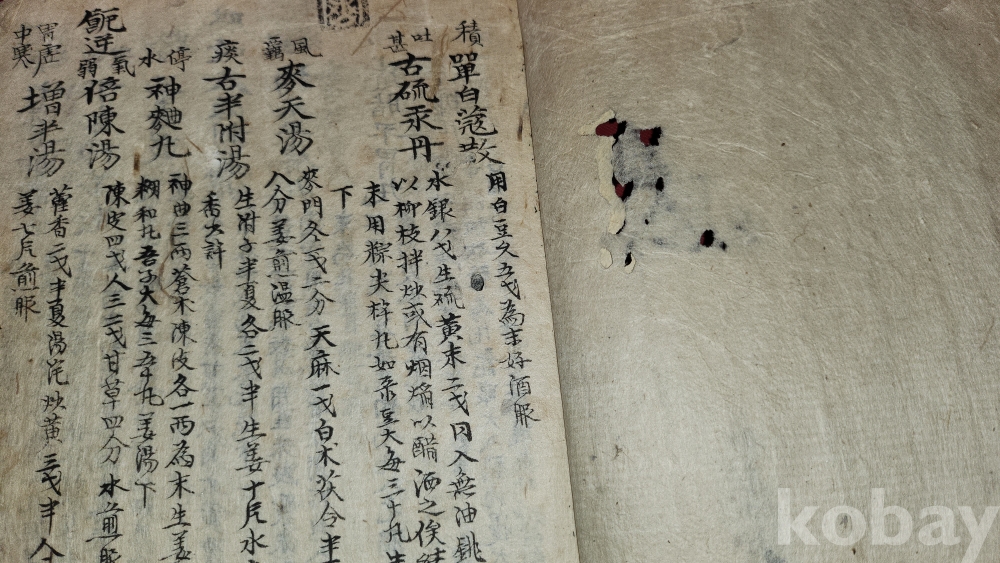 積 單白蔲散
用白豆久五戔為末好酒服
吐甚 古硫汞丹
水銀八戔生硫黃末二戔同入無油銚
以柳枝拌炒或有烟焰以醋洒之俟
末用粽尖杵丸如菉豆大每三十丸生
下
風 麥天湯
麥門冬一戔二分天麻一戔白朮茯令半
八分姜煎溫服
痰 古半附湯
生附子半夏各二戔半生姜十片水
香少許
停水 神麯丸
神曲三兩蒼朮陳皮各一兩為末生姜
糊和丸吾子大每三五十丸姜湯下
氣弱 倍陳湯
陳皮四戔人三二戔甘草四分水煎服
胃虛中寒 增半湯
藿香二戔半夏湯炒黃三戔半人
姜七片煎服
kobay